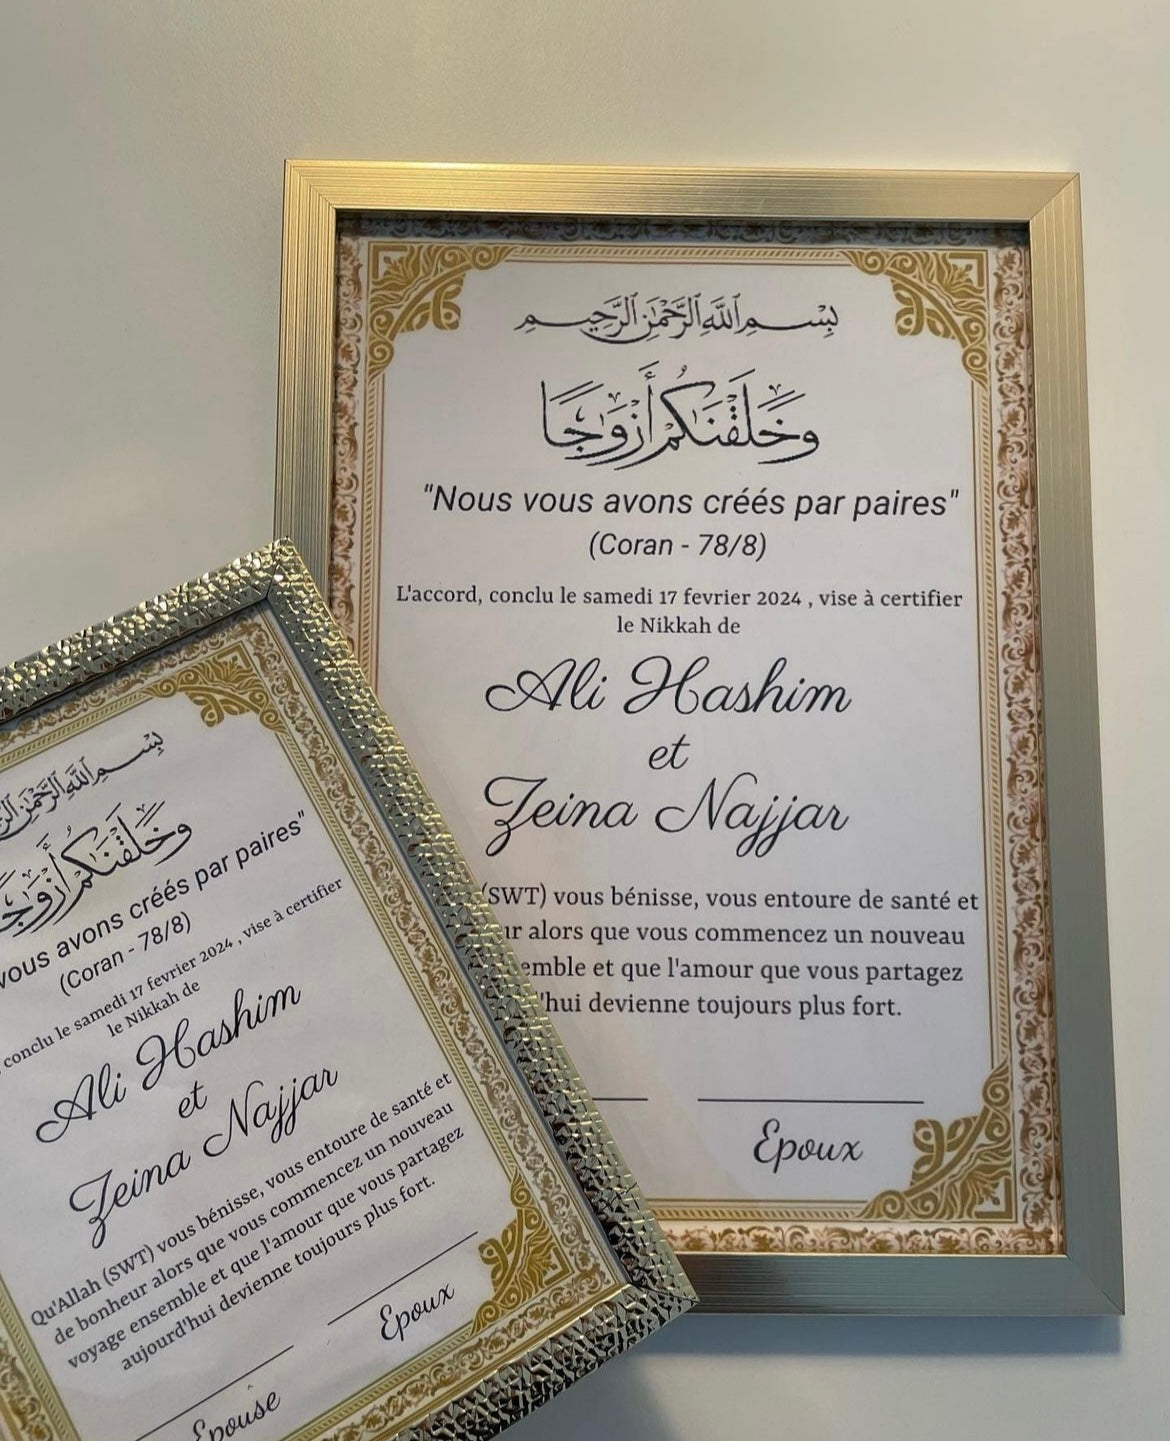 بِسْمِ اللَّهِ الرَّحْمَٰنِ الرَّحِيمِ
وَخَلَقْنَاكُمْ أَزْوَاجًا
"Nous vous avons créés par paires"
(Coran - 78/8)
L'accord, conclu le samedi 17 fevrier 2024 , vise à certifier
le Nikkah de
Ali Hashim
et
Zeina Najjar
(SWT) vous bénisse, vous entoure de santé et
ur alors que vous commencez un nouveau
emble et que l'amour que vous partagez
'hui devienne toujours plus fort.
Epoux
بِسْمِ اللَّهِ الرَّحْمَٰنِ
وَخَلَقْنَاكُمْ أَزْوَاجًا
vous avons créés par paires"
(Coran - 78/8)
, conclu le samedi 17 fevrier 2024 , vise à certifier
le Nikkah de
Ali Hashim
et
Zeina Najjar
Qu'Allah (SWT) vous bénisse, vous entoure de santé et
de bonheur alors que vous commencez un nouveau
voyage ensemble et que l'amour que vous partagez
aujourd'hui devienne toujours plus fort.
Epoux
Épouse